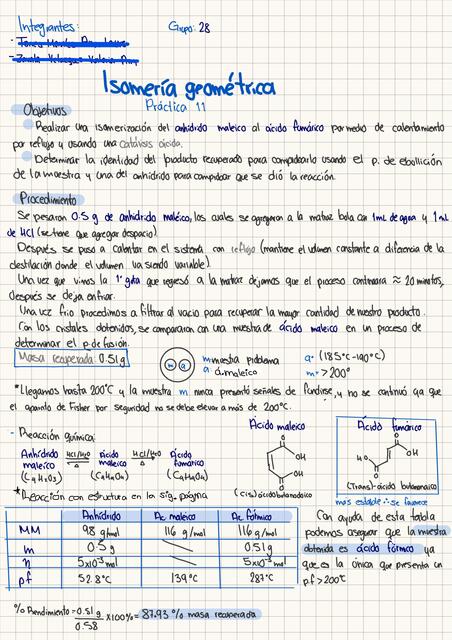 Integrantes:
Grupo: 28
Isomería geométrica
Práctica 11
Objetivos
Realizar una isomerización del anhidrido maleico al ácido fumárico por medio de calentamiento
por reflujo y usando una catálisis ácida.
Determinar la identidad del producto recuperado para compararlo usando el p. de ebullición
de la muestra y una del anhidrido para comprobar que se dió la reacción.
Procedimiento
Se pesaron 0.5 g de anhidrido maleico, los cuales se agregaron a la matraz bola con 1mL de agua y 1 mL
de HCl (se tiene que agregar despacio)
Después se puso a calentar en el sistema con reflujo (mantiene el volumen constante a diferencia de la
destilación donde el volumen va siendo variable).
Una vez que vimos la 1° gota que regresó a la matraz dejamos que el proceso continuara ≈ 20 minutos,
después se deja enfriar.
Una vez frío procedimos a filtrar al vacío para recuperar la mayor cantidad de nuestro producto.
Con los cristales obtenidos, se compararon con una muestra de ácido maleico en un proceso de
determinar el p. de fusión.
Masa recuperada: 0.51g
m a
m muestra problema
a á. maleico
a = (185°c-190°c)
m = >200°
*Llegamos hasta 200°C y la muestra m nunca presentó señales de fundirse, y no se continuó ya que
el aparato de Fisher por seguridad no se debe elevar a más de 200°C.
- Reacción química:
Anhídrido maleico (C4H2O3) HCl/H2O Δ Ácido maleico (C4H4O4) HCl/H2O Δ Ácido fumárico (C4H4O4)
*Reacción con estructura en la sig. página
Ácido maleico
O
OH
OH
O
(Cis) ácido butenodioico
Ácido fumárico
O
OH
HO
O
(Trans)- ácido butenodioico
más estable ∴ se favorece
Anhídrido Ac maleico Ac fúmrico
MM 98 g/mol 116 g/mol 116 g/mol
m 0.5 g 0.51g
n 5x10⁻³ mol 5x10⁻³ mol
pf 52.8°C 139°C 287°C
Con ayuda de esta tabla
podemos asegurar que la muestra
obtenida es ácido fúmrico ya
que es la única que presenta un
p.f > 200°C
% Rendimiento = 0.51 g / 0.58 x 100% = 87.93 % masa recuperada